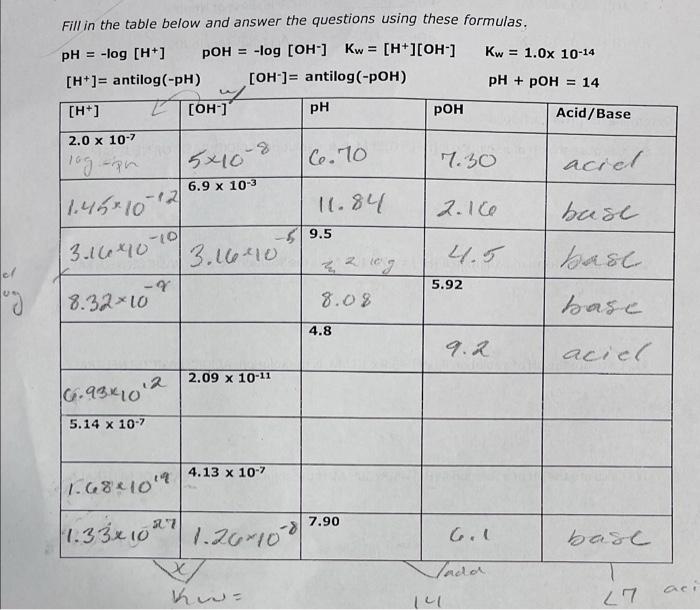 Fill in the table below and answer the questions using these formulas.
pH = -log [H+] pOH = -log [OH-] Kw = [H+][OH-] Kw = 1.0x 10-14
[H+]= antilog(-pH) [OH-]= antilog(-pOH) pH + pOH = 14
[H+] [OH-] pH pOH Acid/Base
2.0 x 10-7 5×10-8 6.70 7.30 acid
log -pH
1.45×10-12 6.9 x 10-3 11.84 2.16 base
3.16×10-10 3.16×10-5 9.5 4.5 base
2 log
8.32×10-9 8.08 5.92 base
4.8 9.2 acid
6.93×1012 2.09 x 10-11
5.14 x 10-7
1.68×1019 4.13 x 10-7
1.33×1027 1.26×10-8 7.90 6.1 base
x add
Kw= 14 <7 aci